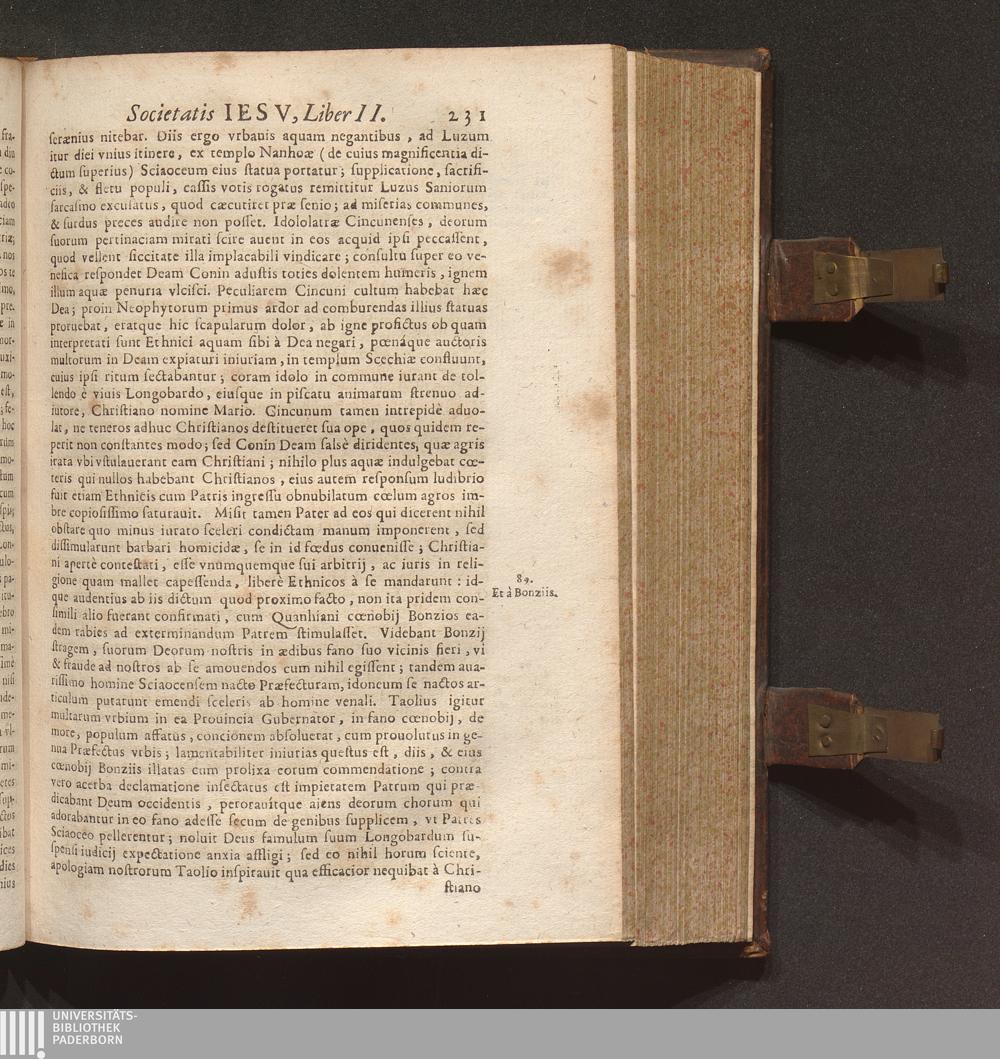 Societatis IESV, Liber II. 231
serænius nitebat. Diis ergo vrbanis aquam negantibus, ad Luzum
itur diei vnius itinere, ex templo Nanhoæ (de cuius magnificentia di-
ctum superius) Sciaoceum eius statua portatur; supplicatione, sacrifi-
ciis, & fletu populi, cassis votis rogatus remittitur Luzus Saniorum
sarcasmo excusatus, quod cæcutiret præ senio; ad miserias communes,
& surdus preces audire non posset. Idololatræ Cincunenses, deorum
suorum pertinaciam mirati scire auent in eos acquid ipsi peccassent,
quod vellent siccitate illa implacabili vindicare; consultu super eo ve-
nefica respondet Deam Conin adustis toties dolentem humeris, ignem
illum aquæ penuria vlcisci. Peculiarem Cincuni cultum habebat hæc
Dea; proin Neophytorum primus ardor ad comburendas illius statuas
proruebat, eratque hic scapularum dolor, ab igne profictus ob quam
interpretati sunt Ethnici aquam sibi à Dea negari, pœnáque auctoris
multorum in Deam expiaturi iniuriam, in templum Scechiæ confluunt,
cuius ipsi ritum sectabantur; coram idolo in commune iurant de tol-
lendo è viuis Longobardo, eiusque in piscatu animarum strenuo ad-
iutore, Christiano nomine Mario. Cincunum tamen intrepidè aduo-
lat, ne teneros adhuc Christianos destitueret sua ope, quos quidem re-
perit non constantes modo; sed Conin Deam salsè diridentes, quæ agris
irata vbi vstulauerant eam Christiani; nihilo plus aquæ indulgebat cœ-
teris qui nullos habebant Christianos, eius autem responsum ludibrio
fuit etiam Ethnicis cum Patris ingressu obnubilatum cœlum agros im-
bre copiosissimo saturauit. Misit tamen Pater ad eos qui dicerent nihil
obstare quo minus iurato sceleri condictam manum imponerent, sed
dissimularunt barbari homicidæ, se in id fœdus conuenisse; Christia-
ni apertè contestati, esse vnumquemque sui arbitrij, ac iuris in reli-
gione quam mallet capessenda, liberè Ethnicos à se mandarunt: id-
que audentius ab iis dictum quod proximo facto, non ita pridem con-
simili alio fuerant confirmati, cum Quanhiani cœnobij Bonzios ea-
dem rabies ad exterminandum Patrem stimulasset. Videbant Bonzij
stragem, suorum Deorum nostris in ædibus fano suo vicinis fieri, vi
& fraude ad nostros ab se amouendos cum nihil egissent; tandem aua-
rissimo homine Sciaocensem nacto Præfecturam, idoneum se nactos ar-
ticulum putarunt emendi sceleris ab homine venali. Taolius igitur
multarum vrbium in ea Prouincia Gubernator, in fano cœnobij, de
more, populum affatus, concionem absoluerat, cum prouolutus in ge-
nua Præfectus vrbis; lamentabiliter iniurias questus est, diis, & eius
cœnobij Bonziis illatas cum prolixa eorum commendatione; contra
vero acerba declamatione insectatus est impietatem Patrum qui præ-
dicabant Deum occidentis, perorauitque aiens deorum chorum qui
adorabantur in eo fano adesse secum de genibus supplicem, vt Patres
Sciaoceo pellerentur; noluit Deus famulum suum Longobardum su-
spensi iudicij expectatione anxia affligi; sed eo nihil horum sciente,
apologiam nostrorum Taolio inspirauit qua efficacior nequibat à Chri-
stiano
89.
Et à Bonziis.
UNIVERSITÄTS-
BIBLIOTHEK
PADERBORN